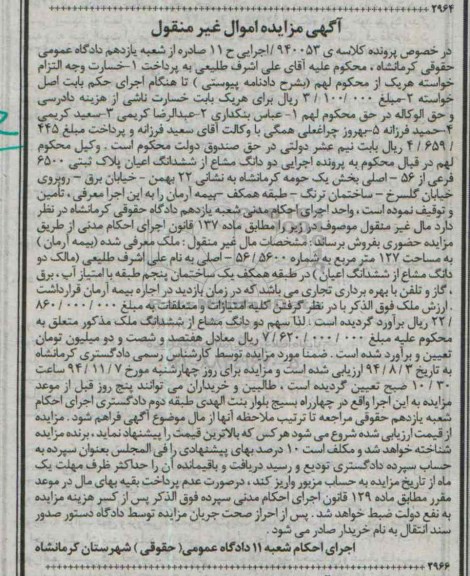 ۲۹۶۴
آگهی مزایده اموال غیر منقول
در خصوص پرونده کلاسه ی ۹۴۰۰۵۳ /اجرایی ح ۱۱ صادره از شعبه یازدهم دادگاه عمومی
حقوقی کرمانشاه ، محکوم علیه آقای علی اشرف طلیعی به پرداخت ۱-خسارت وجه التزام
خواسته هریک از محکوم لهم (بشرح دادنامه پیوستی ) تا هنگام اجرای حکم بابت اصل
خواسته ۲-مبلغ ۱۰۰/۰۰۰ / ۳ ریال برای هریک بابت خسارت ناشی از هزینه دادرسی
و حق الوکاله در حق محکوم لهم ۱- عباس بنکداری ۲-عبدالرضا کریمی ۳-سعید کریمی
۴-حمید فرزانه ۵-بهروز چراغعلی همگی با وکالت آقای سعید فرزانه و پرداخت مبلغ ۴۴۵
/ ۶۵۹ / ۴ ریال بابت نیم عشر دولتی در حق صندوق دولت محکوم است . وکیل محکوم
لهم در قبال محکوم به پرونده اجرایی دو دانگ مشاع از ششدانگ اعیان پلاک ثبتی ۶۵۰۰
فرعی از ۵۶ - اصلی بخش یک حومه کرمانشاه به نشانی ۲۲ بهمن - خیابان برق - روبروی
خیابان گلسرخ – ساختمان ترنگ - طبقه همکف –بیمه آرمان را به این اجرا معرفی ، تأمین
و توقیف نموده است ، واحد اجرای احکام مدنی شعبه یازدهم دادگاه حقوقی کرمانشاه در نظر
دارد مال غیر منقول موصوف در زیر را مطابق ماده ۱۳۷ قانون اجرای احکام مدنی از طریق
مزایده حضوری بفروش برساند : مشخصات مال غیر منقول : ملک معرفی شده (بیمه آرمان )
به مساحت ۱۲۷ متر مربع به شماره ۵۶/۵۶۰۰ – اصلی به نام علی اشرف طلیعی (مالک دو
دانگ مشاع از ششدانگ اعیان ) در طبقه همکف یک ساختمان پنجم طبقه با امتیاز آب ، برق
، گاز و تلفن با بهره برداری تجاری می باشد که در زمان بازدید در اجاره بیمه آرمان قرار داشت
. ارزش ملک فوق الذکر با در نظر گرفتن کلیه امتیازات و متعلقات به مبلغ ۰۰۰ / ۰۰۰ / ۸۶۰
/ ۲۲ ریال برآورد گردیده است . لذا سهم دو دانگ مشاع از ششدانگ ملک مذکور متعلق به
محکوم علیه مبلغ ۰۰۰ / ۰۰۰ / ۶۲۰ / ۷ ریال معادل هفتصد و شصت و دو میلیون تومان
تعیین و برآورد شده است . ضمنا مورد مزایده توسط کارشناس رسمی دادگستری کرمانشاه
به تاریخ ۳ / ۸ / ۹۴ ارزیابی شده است و مزایده برای روز چهارشنبه مورخ ۷ / ۱۱ / ۹۴ ساعت
۳۰ / ۱۰ صبح تعیین گردیده است ، طالبین و خریداران می توانند پنج روز قبل از موعد
مزایده به این اجرا واقع در چهارراه بسیج بلوار بنت الهدی طبقه دوم دادگستری اجرای احکام
شعبه یازدهم حقوقی مراجعه تا ترتیب ملاحظه آنها از مال موضوع آگهی فراهم شود . مزایده
از قیمت ارزیابی شده شروع می شود هر کس که بالاترین قیمت را پیشنهاد نماید ، برنده مزایده
شناخته خواهد شد و مکلف است ۱۰ درصد بهای پیشنهادی را فی المجلس بعنوان سپرده به
حساب سپرده دادگستری تودیع و رسید دریافت و باقیمانده آن را حداکثر ظرف مهلت یک
ماه از تاریخ مزایده به حساب مزبور واریز کند ، درصورت عدم پرداخت بقیه بهای مال در موعد
مقرر مطابق ماده ۱۲۹ قانون اجرای احکام مدنی سپرده فوق الذکر پس از کسر هزینه مزایده
به نفع دولت ضبط خواهد شد . پس از احراز صحت جریان مزایده توسط دادگاه دستور صدور
سند انتقال به نام خریدار صادر می شود .
اجرای احکام شعبه ۱۱ دادگاه عمومی( حقوقی ) شهرستان کرمانشاه
۲۹۶۶